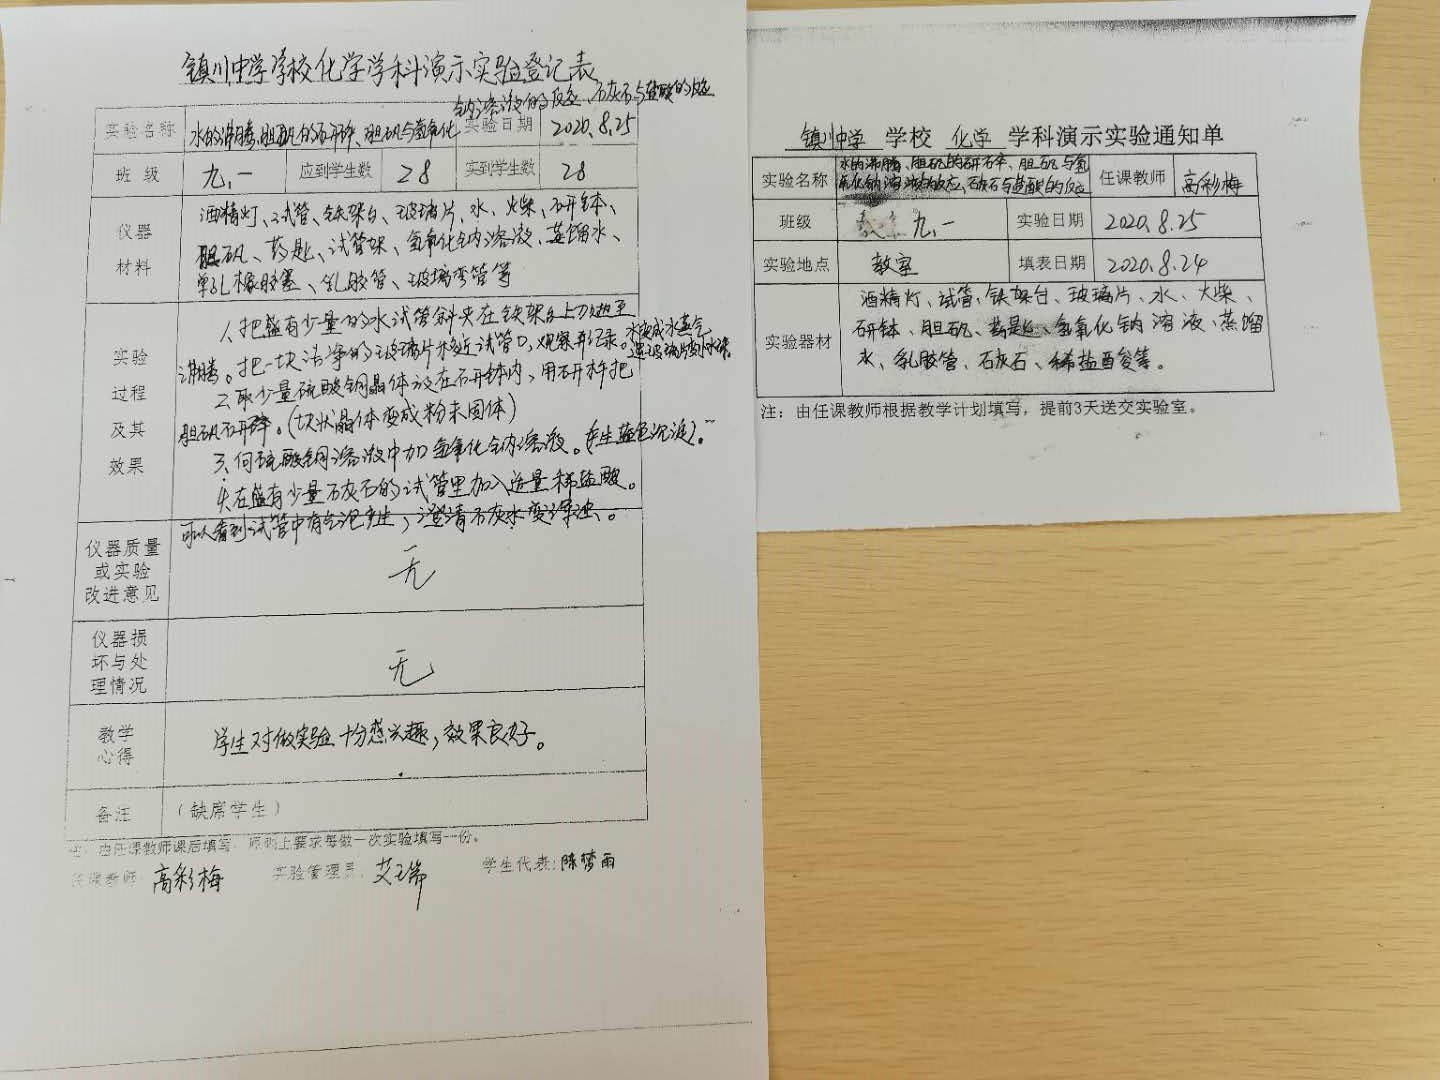 镇川中学学校化学学科演示实验登记表
实验名称 水的沸腾、胆矾的研碎、胆矾与氢氧化
钠溶液的反应、石灰石与盐酸的反应
实验日期 2020.8.25
班 级 九.一 应到学生数 28 实到学生数 28
仪器
材料
酒精灯、试管、铁架台、玻璃片、水、火柴、研钵、
胆矾、药匙、试管架、氢氧化钠溶液、蒸馏水、
单孔橡胶塞、乳胶管、玻璃弯管等
实验
过程
及其
效果
1、把盛有少量的水试管斜夹在铁架台上加热至
沸腾。把一块洁净的玻璃片移近试管口,观察并记录。水变成水蒸气
遇玻璃片变小水珠。
2、取少量硫酸铜晶体放在研钵内,用研杵把
胆矾研碎。(块状晶体变成粉末固体)
3、向硫酸铜溶液中加氢氧化钠溶液。(产生蓝色沉淀)。
4、在盛有少量石灰石的试管里加入适量稀盐酸。
可以看到试管中有气泡产生,澄清石灰水变浑浊。
仪器质量
或实验
改进意见
无
仪器损
坏与处
理情况
无
教学
心得
学生对做实验十分感兴趣,效果良好。
备注 (缺席学生)
注:由任课教师课后填写,原则上要求每做一次实验填写一份。
任课教师:高彩梅 实验管理员:艾瑞 学生代表:陈梦雨
镇川中学 学校 化学 学科演示实验通知单
实验名称 水的沸腾、胆矾的研碎、胆矾与氢
氧化钠溶液的反应、石灰石与盐酸的反应
任课教师 高彩梅
班级 九.一 实验日期 2020.8.25
实验地点 教室 填表日期 2020.8.24
实验器材
酒精灯、试管、铁架台、玻璃片、水、火柴、
研钵、胆矾、药匙、氢氧化钠溶液、蒸馏
水、乳胶管、石灰石、稀盐酸等。
注:由任课教师根据教学计划填写,提前3天送交实验室。